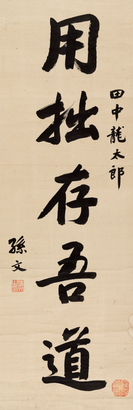 田中龍太郎
用拙存吾道
孫文